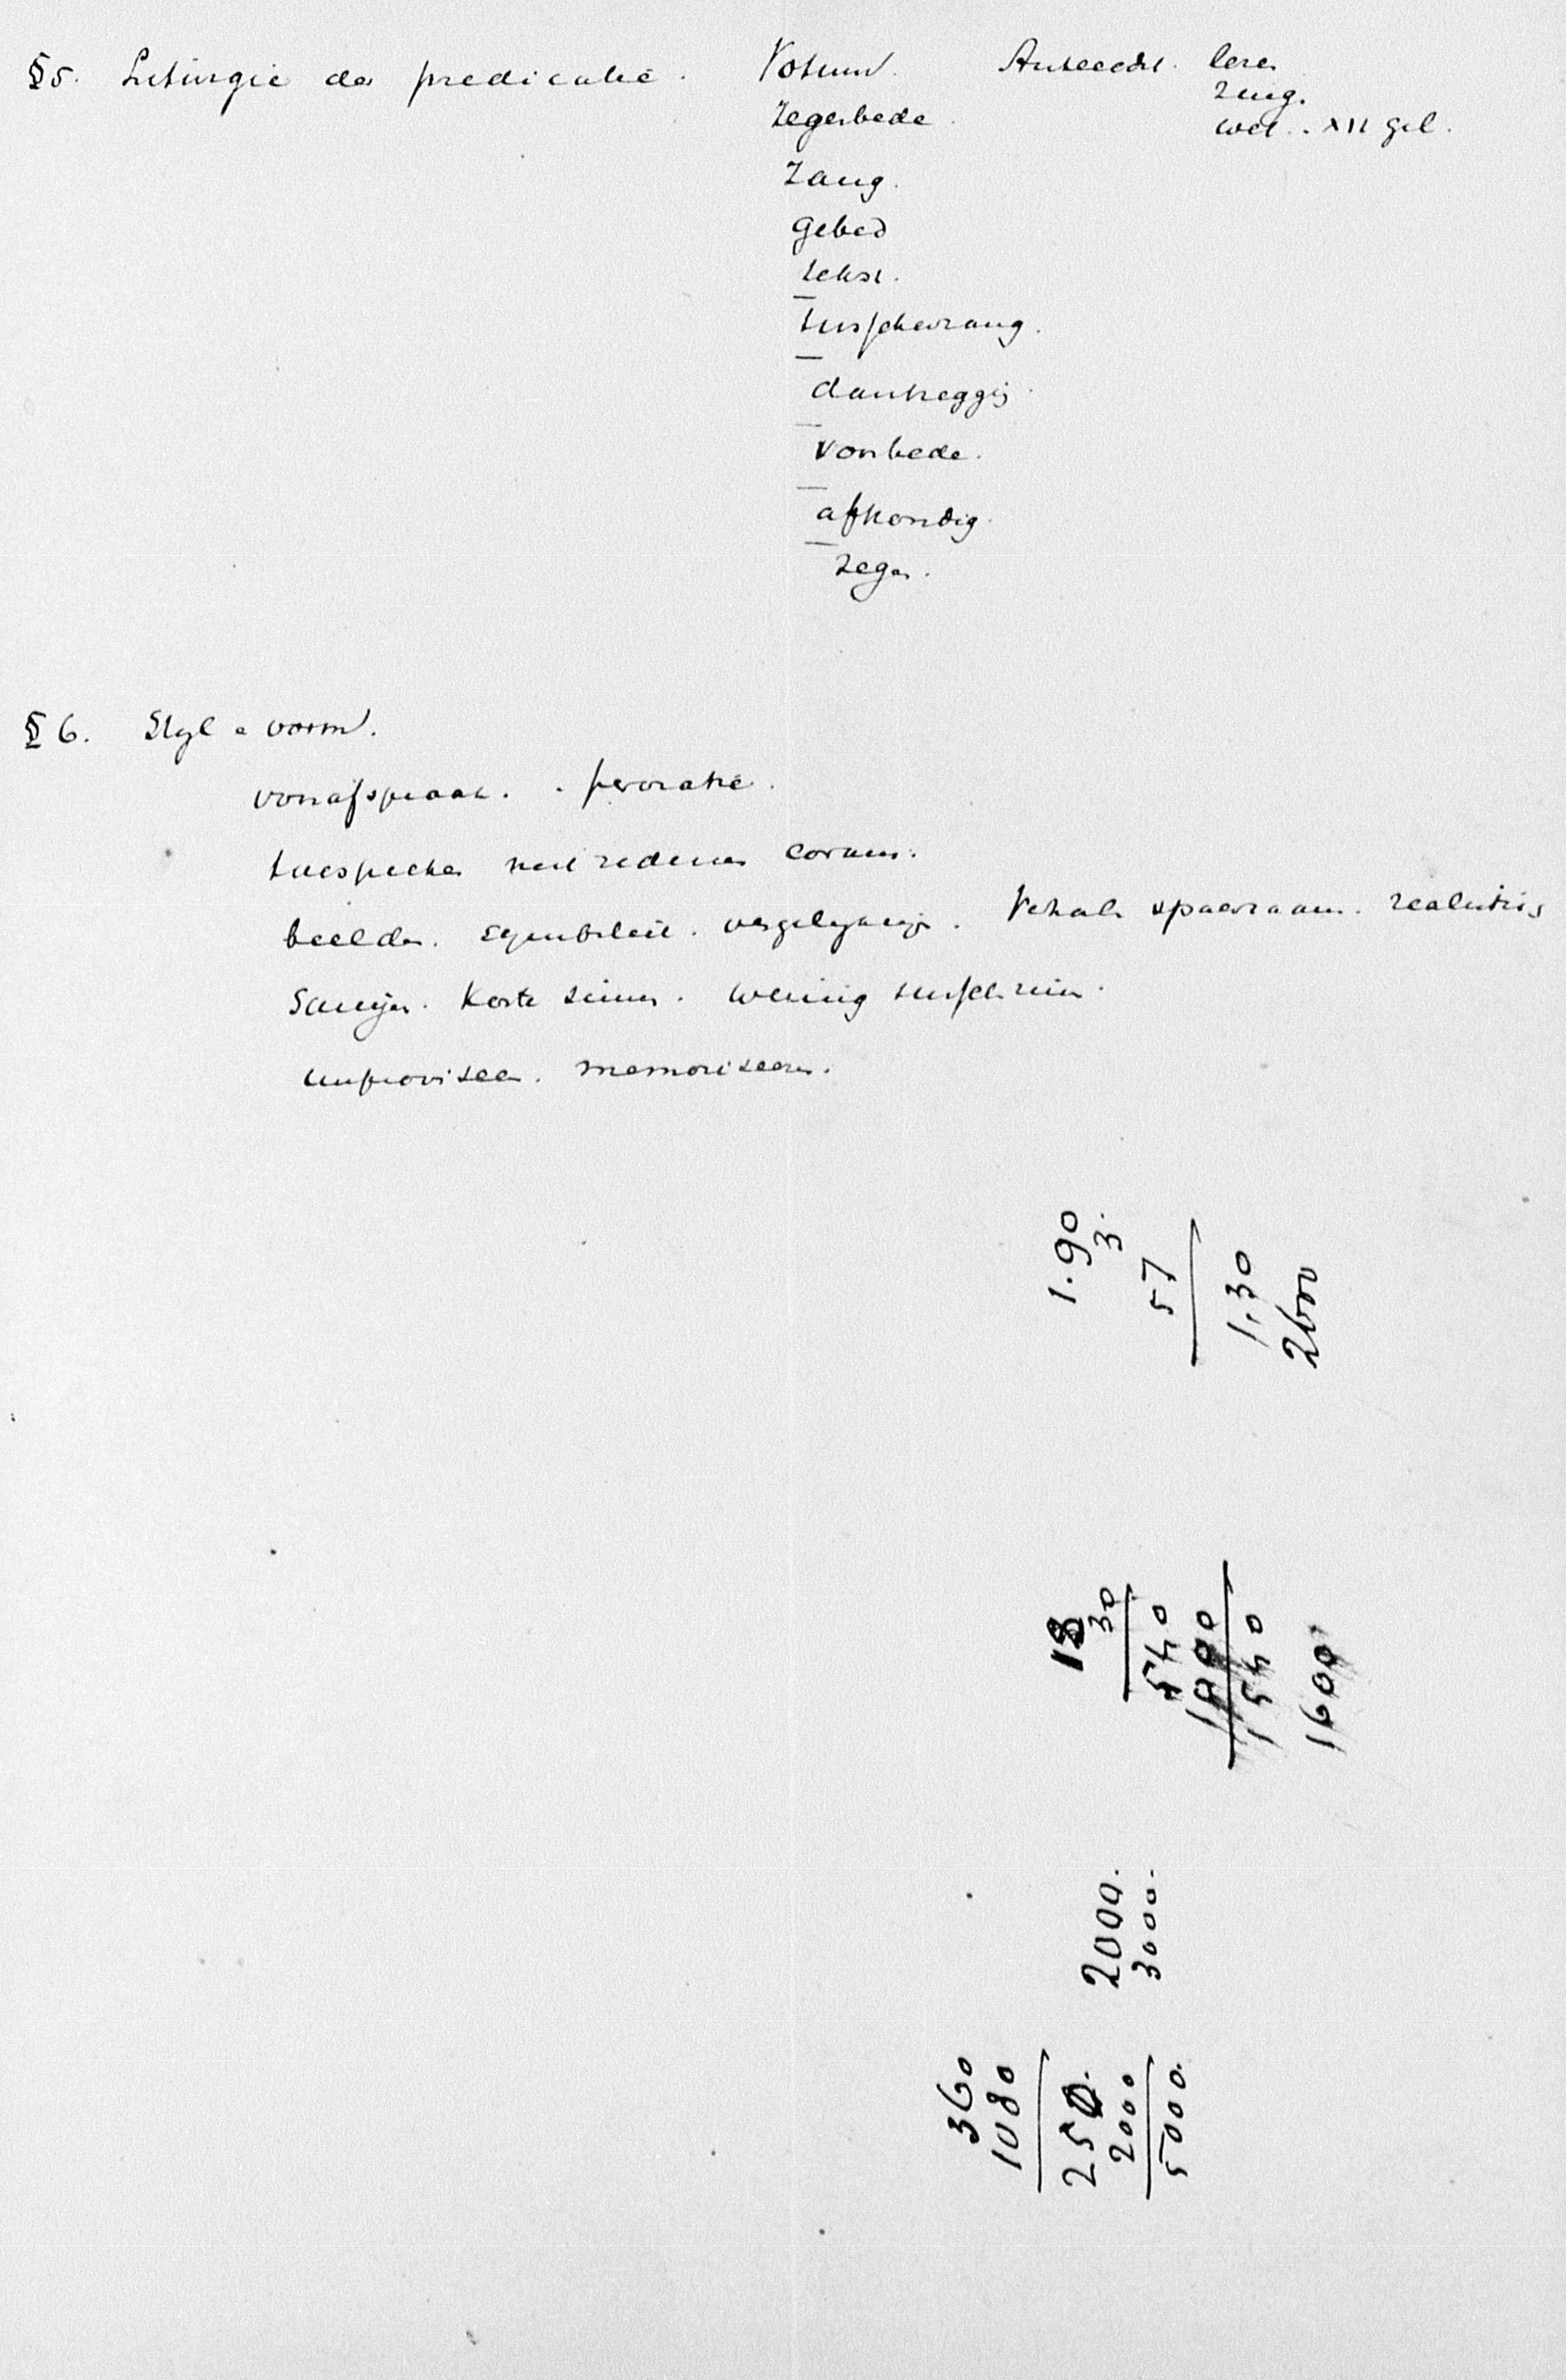 §5. Liturgie der predicatie. Votum. Antecedn. lezen
zing.
Zegenbede. wet. XII gel.
Zang.
gebed
tekst.
tusschenzang.
dankzegging.
voorbede.
afkondig.
zegen.
§ 6. Styl en vorm.
voorafspraak. peroratie.
toespreken niet redenen coram.
beelden. symboliek. vergelijking. Verhale spaarzaam. realistis
Korte zinnen. weinig tusschenzin.
improviseer. memoriseeren.
1.90
3.
57
1,30
2600
18
30
540
1000
1540
1600
2000.
3000.
360
1080
250.
2000
5000.